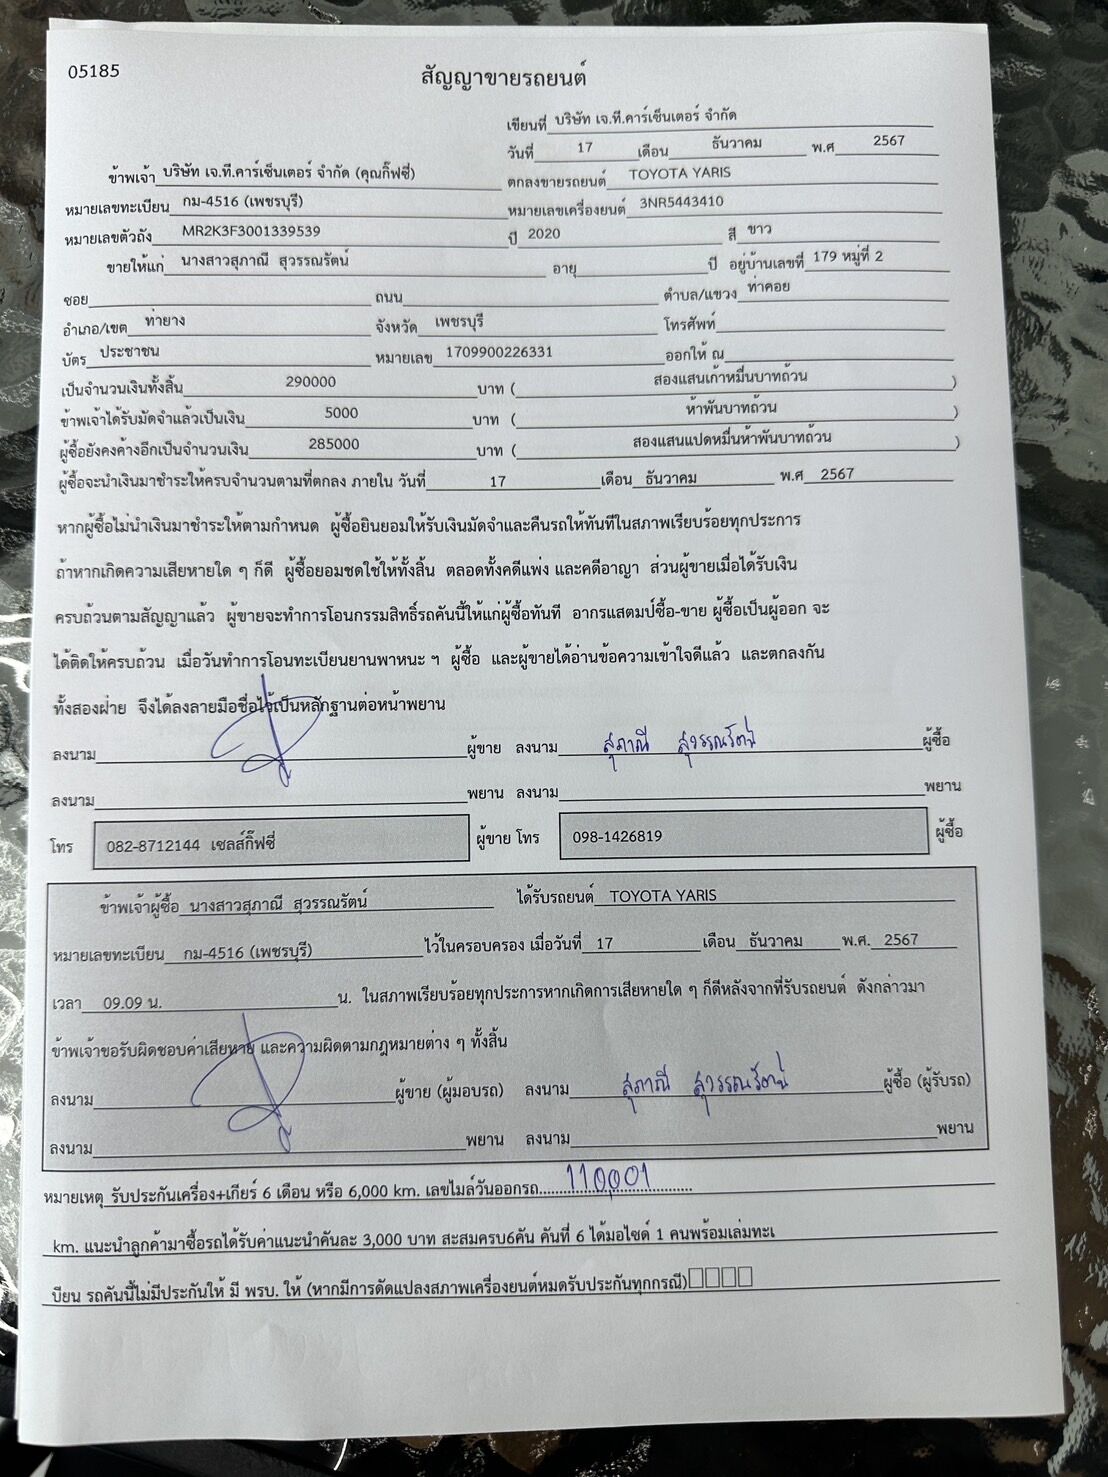 05185
สัญญาขายรถยนต์
เขียนที่ บริษัท เจ.ที.คาร์เซ็นเตอร์ จำกัด
วันที่ 17 เดือน ธันวาคม พ.ศ 2567
ข้าพเจ้า บริษัท เจ.ที.คาร์เซ็นเตอร์ จำกัด (คุณกิ๊ฟซี่) ตกลงขายรถยนต์ TOYOTA YARIS
หมายเลขทะเบียน กม-4516 (เพชรบุรี) หมายเลขเครื่องยนต์ 3NR5443410
หมายเลขตัวถัง MR2K3F3001339539 ปี 2020 สี ขาว
ขายให้แก่ นางสาวสุภาณี สุวรรณรัตน์ อายุ ปี อยู่บ้านเลขที่ 179 หมู่ที่ 2
ซอย ถนน ตำบล/แขวง ท่าคอย
อำเภอ/เขต ท่ายาง จังหวัด เพชรบุรี โทรศัพท์
บัตร ประชาชน หมายเลข 1709900226331 ออกให้ ณ
เป็นจำนวนเงินทั้งสิ้น 290000 บาท ( สองแสนเก้าหมื่นบาทถ้วน )
ข้าพเจ้าได้รับมัดจำแล้วเป็นเงิน 5000 บาท ( ห้าพันบาทถ้วน )
ผู้ซื้อยังคงค้างอีกเป็นจำนวนเงิน 285000 บาท ( สองแสนแปดหมื่นห้าพันบาทถ้วน )
ผู้ซื้อจะนำเงินมาชำระให้ครบจำนวนตามที่ตกลง ภายใน วันที่ 17 เดือน ธันวาคม พ.ศ 2567
หากผู้ซื้อไม่นำเงินมาชำระให้ตามกำหนด ผู้ซื้อยินยอมให้รับเงินมัดจำและคืนรถให้ทันทีในสภาพเรียบร้อยทุกประการ
ถ้าหากเกิดความเสียหายใด ๆ ก็ดี ผู้ซื้อยอมชดใช้ให้ทั้งสิ้น ตลอดทั้งคดีแพ่ง และคดีอาญา ส่วนผู้ขายเมื่อได้รับเงิน
ครบถ้วนตามสัญญาแล้ว ผู้ขายจะทำการโอนกรรมสิทธิ์รถคันนี้ให้แก่ผู้ซื้อทันที อากรแสตมป์ซื้อ-ขาย ผู้ซื้อเป็นผู้ออก จะ
ได้ติดให้ครบถ้วน เมื่อวันทำการโอนทะเบียนยานพาหนะ ฯ ผู้ซื้อ และผู้ขายได้อ่านข้อความเข้าใจดีแล้ว และตกลงกัน
ทั้งสองฝ่าย จึงได้ลงลายมือชื่อไว้เป็นหลักฐานต่อหน้าพยาน
ลงนาม ผู้ขาย ลงนาม สุภาณี สุวรรณรัตน์ ผู้ซื้อ
ลงนาม พยาน ลงนาม พยาน
โทร 082-8712144 เซลส์กิ๊ฟซี่ ผู้ขาย โทร 098-1426819 ผู้ซื้อ
ข้าพเจ้าผู้ซื้อ นางสาวสุภาณี สุวรรณรัตน์ ได้รับรถยนต์ TOYOTA YARIS
หมายเลขทะเบียน กม-4516 (เพชรบุรี) ไว้ในครอบครอง เมื่อวันที่ 17 เดือน ธันวาคม พ.ศ. 2567
เวลา 09.09 น. น. ในสภาพเรียบร้อยทุกประการหากเกิดการเสียหายใด ๆ ก็ดีหลังจากที่รับรถยนต์ ดังกล่าวมา
ข้าพเจ้าขอรับผิดชอบค่าเสียหาย และความผิดตามกฎหมายต่าง ๆ ทั้งสิ้น
ลงนาม ผู้ขาย (ผู้มอบรถ) ลงนาม สุภาณี สุวรรณรัตน์ ผู้ซื้อ (ผู้รับรถ)
ลงนาม พยาน ลงนาม พยาน
หมายเหตุ รับประกันเครื่อง+เกียร์ 6 เดือน หรือ 6,000 km. เลขไมล์วันออกรถ 110,001
km. แนะนำลูกค้ามาซื้อรถได้รับค่าแนะนำคันละ 3,000 บาท สะสมครบ6คัน คันที่ 6 ได้มอไซด์ 1 คนพร้อมเล่มทะเ
บียน รถคันนี้ไม่มีประกันให้ มี พรบ. ให้ (หากมีการดัดแปลงสภาพเครื่องยนต์หมดรับประกันทุกกรณี)